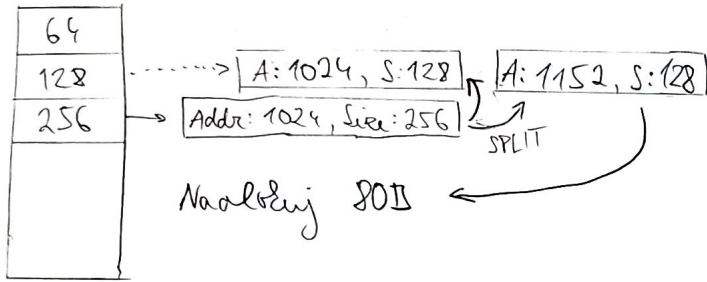 64
128 A: 1024, S: 128 A: 1152, S: 128
256 Addr: 1024, Size: 256 SPLIT
Naalokuj 80B